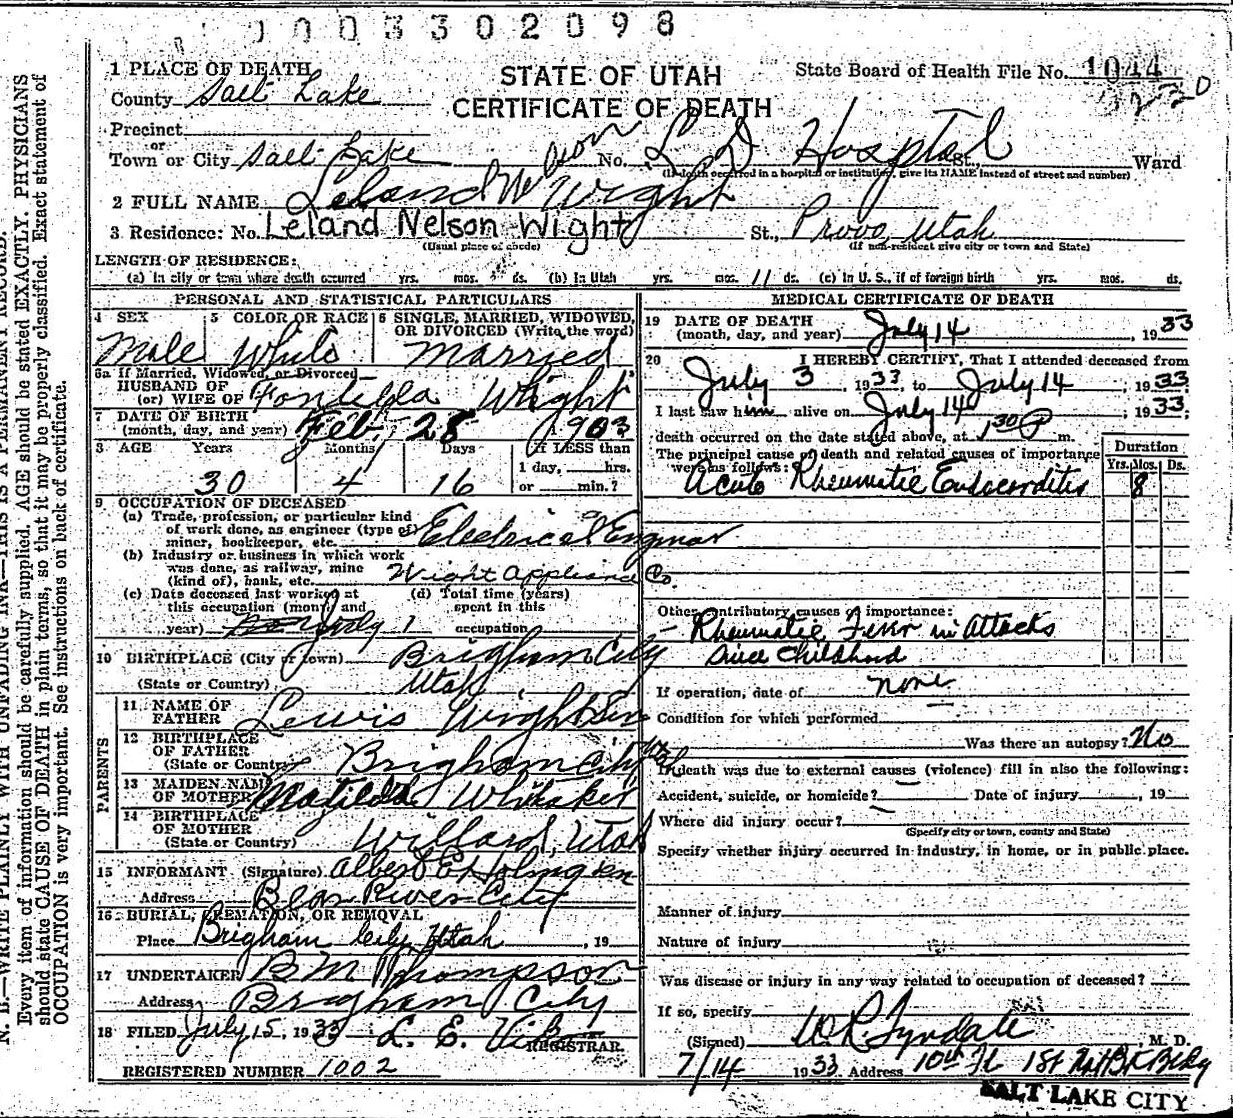 0003302098
1 PLACE OF DEATH
STATE OF UTAH
CERTIFICATE OF DEATH
State Board of Health File No. 1044
County Salt Lake
Precinct
or
Town or City Salt Lake No. L D Hosptal St., Ward
(If death occurred in a hospital or institution, give its NAME instead of street and number)
2 FULL NAME Leland Wight
Leland Nelson Wight
3 Residence: No. St., Provo Utah
(Usual place of abode) (If non-resident give city or town and State)
LENGTH OF RESIDENCE:
(a) In city or town where death occurred yrs. mos. ds. (b) In Utah yrs. mos. 11 ds. (c) In U. S., if of foreign birth yrs. mos. ds.
PERSONAL AND STATISTICAL PARTICULARS
4 SEX Male
5 COLOR OR RACE White
6 SINGLE, MARRIED, WIDOWED, OR DIVORCED (Write the word) Married
6a If Married, Widowed, or Divorced
HUSBAND OF
(or) WIFE OF Fontella Wright
7 DATE OF BIRTH
(month, day, and year) Feb. 28 1903
8 AGE Years Months Days If LESS than
1 day, hrs.
30 4 16 or min.?
9 OCCUPATION OF DECEASED
(a) Trade, profession, or particular kind
of work done, as engineer (type of)
miner, bookkeeper, etc. Electrical
(b) Industry or business in which work
was done, as railway, mine
(kind of), bank, etc. Wight Co.
(c) Date deceased last worked at
this occupation (month and
year) July 1
(d) Total time (years)
spent in this
occupation
10 BIRTHPLACE (City or town) Brigham City
(State or Country) Utah
PARENTS
11 NAME OF
FATHER Lewis Wight
12 BIRTHPLACE
OF FATHER
(State or Country) Brigham City
13 MAIDEN NAME
OF MOTHER Matilda Whitaker
14 BIRTHPLACE
OF MOTHER
(State or Country) Willard, Utah
15 INFORMANT (Signature) Albert E Holmgren
Address Bear River City
16 BURIAL, CREMATION, OR REMOVAL
Place Brigham City Utah , 19
17 UNDERTAKER B M Thompson
Address Brigham City
18 FILED July 15, 1933 L. E.
REGISTRAR.
REGISTERED NUMBER 1002
MEDICAL CERTIFICATE OF DEATH
19 DATE OF DEATH
(month, day, and year) July 14 , 1933
20 I HEREBY CERTIFY, That I attended deceased from
July 3 , 1933, to July 14 , 1933
I last saw him alive on July 14 , 1933;
death occurred on the date stated above, at 1 30 P m.
The principal cause of death and related causes of importance
were as follows:
Duration
Yrs. Mos. Ds.
Acute Rheumatic Endocarditis 8
Other contributory causes of importance:
Rheumatic Fever in Attacks
since Childhood
If operation, date of none
Condition for which performed
Was there an autopsy? No
If death was due to external causes (violence) fill in also the following:
Accident, suicide, or homicide? Date of injury , 19
Where did injury occur?
(Specify city or town, county and State)
Specify whether injury occurred in industry, in home, or in public place.
Manner of injury
Nature of injury
Was disease or injury in any way related to occupation of deceased?
If so, specify
(Signed) W R Tyndale , M. D.
7/14 1933 Address 10th Fl 1st Nat Bk Bldg
SALT LAKE CITY
N. B.—WRITE PLAINLY WITH UNFADING INK—THIS IS A PERMANENT RECORD.
Every item of information should be carefully supplied. AGE should be stated EXACTLY. PHYSICIANS
should state CAUSE OF DEATH in plain terms, so that it may be properly classified. Exact statement of
OCCUPATION is very important. See instructions on back of certificate.